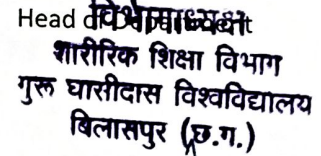 Head of Department
विभागाध्यक्ष
शारीरिक शिक्षा विभाग
गुरू घासीदास विश्वविद्यालय
बिलासपुर (छ.ग.)